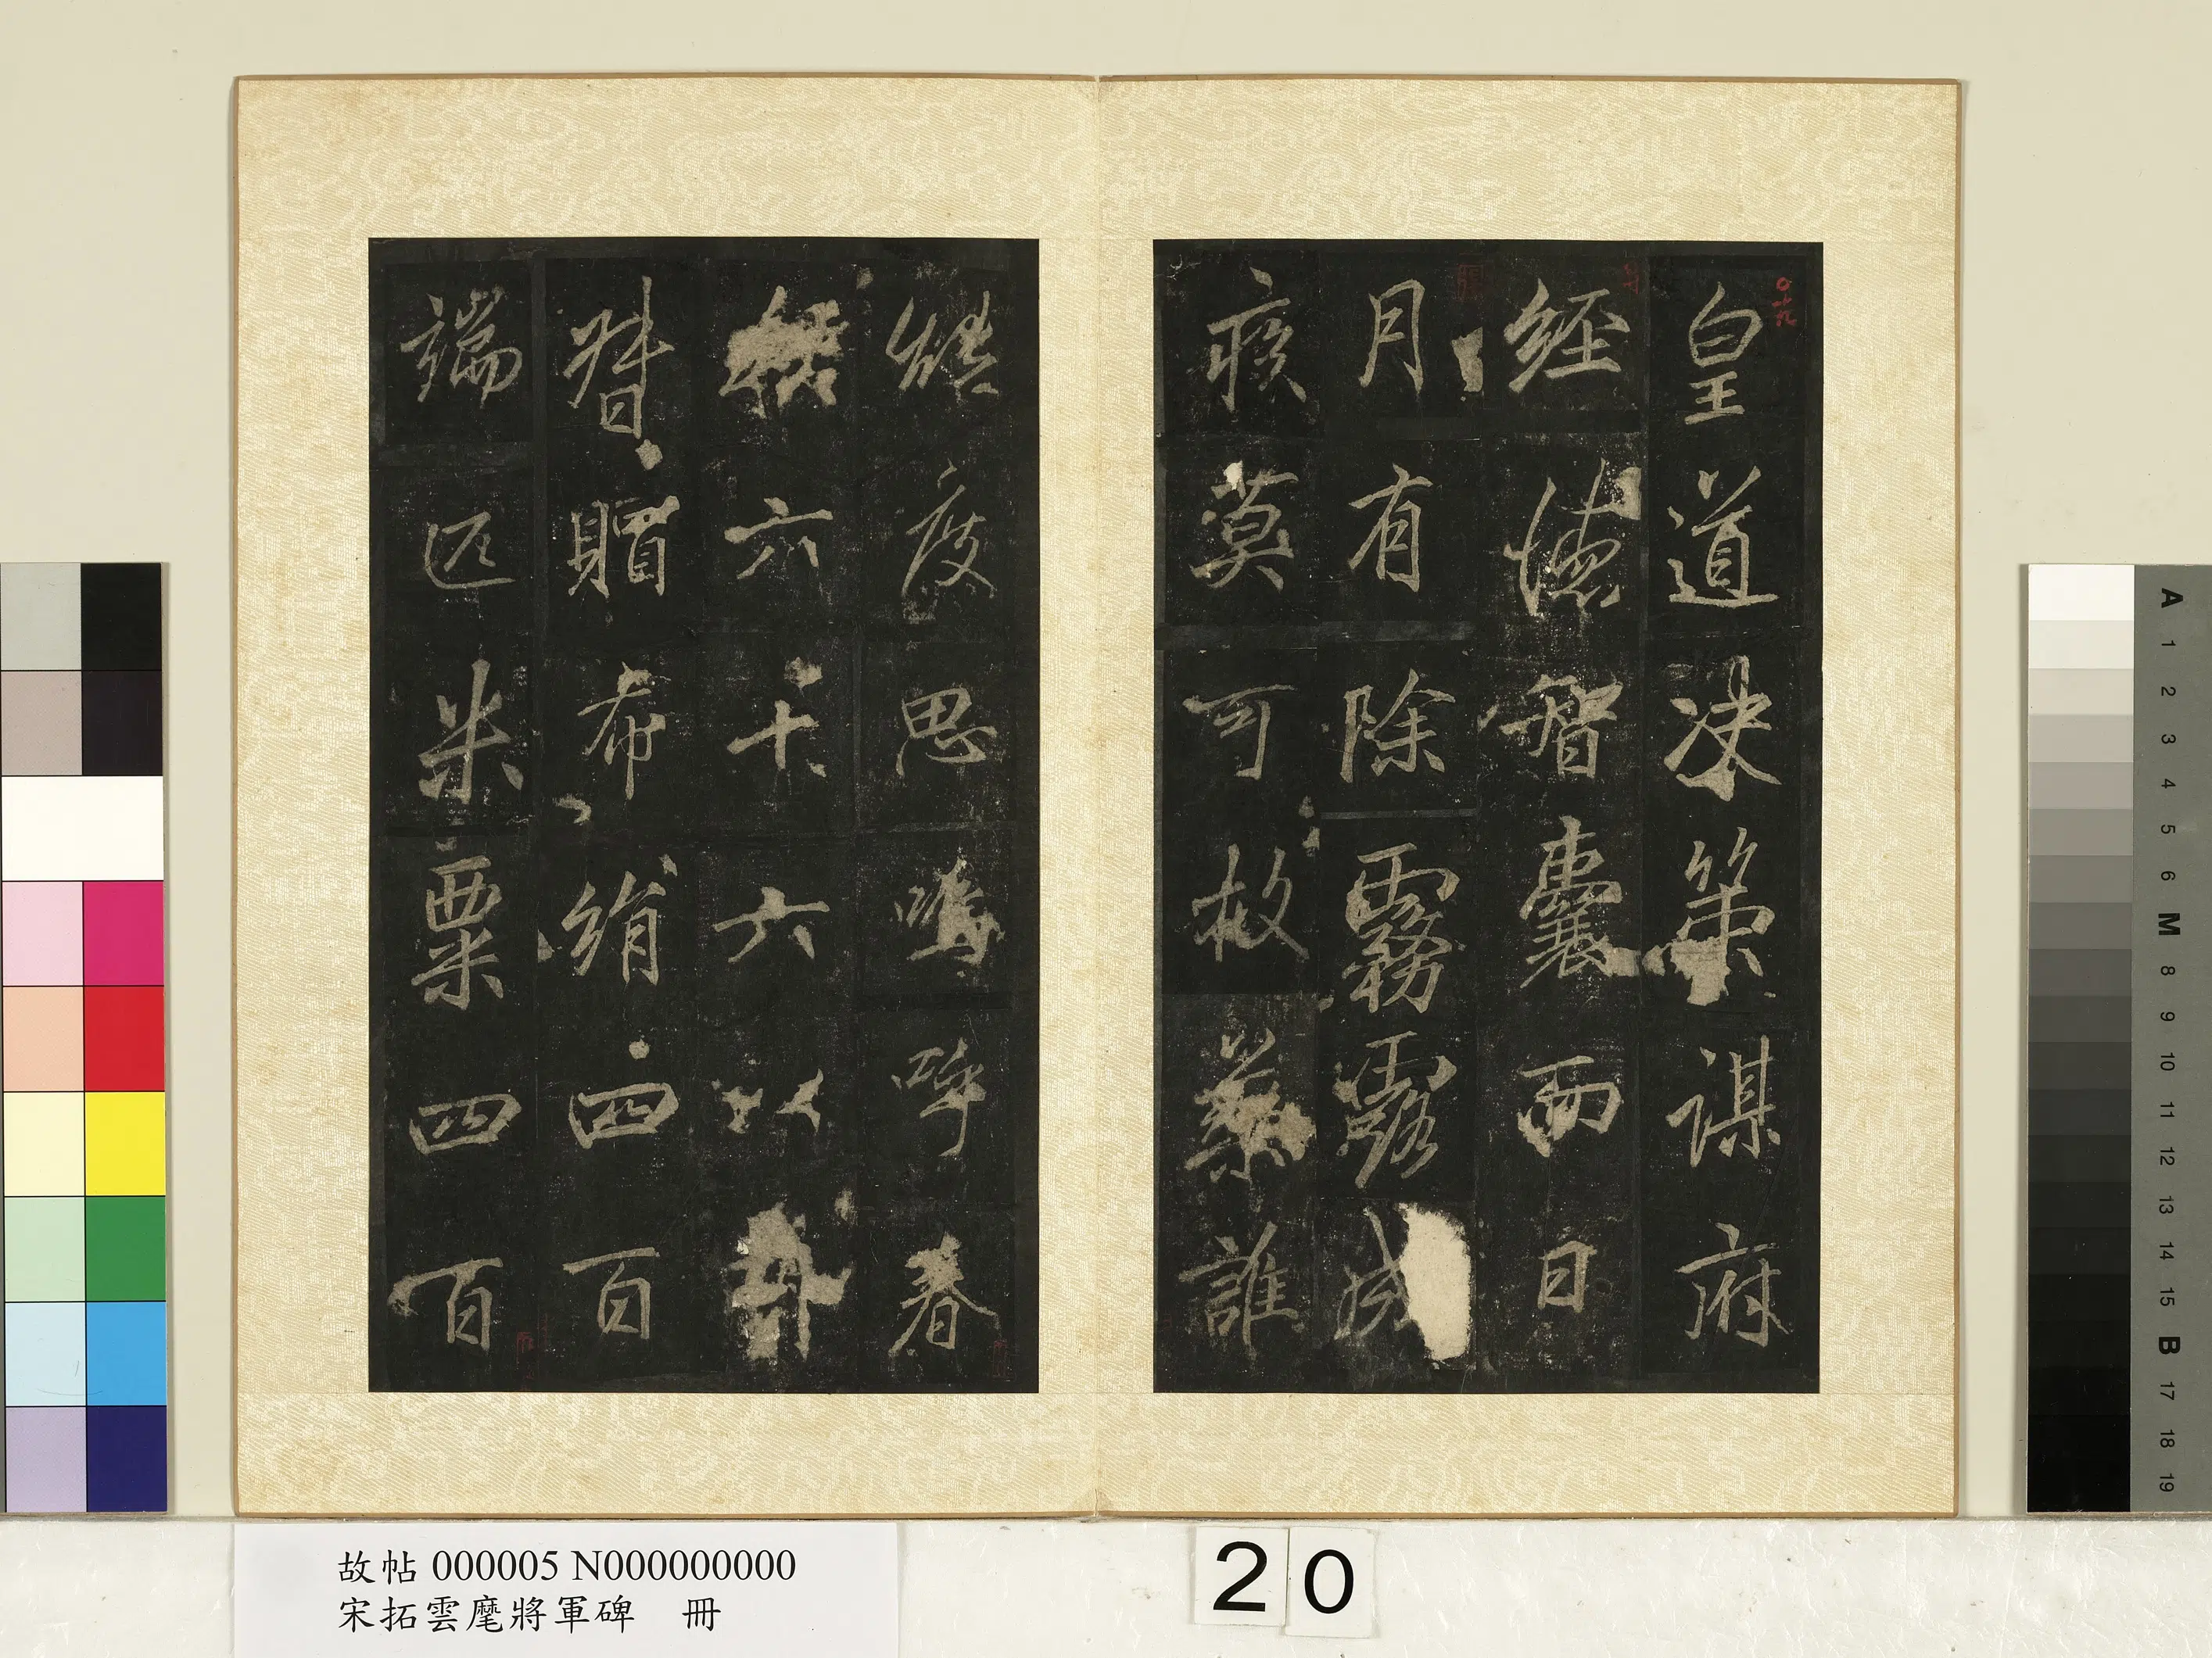 皇道決策謀府
經德智囊而日
月有除霧露成
疾莫可救藥誰
能度思嗚呼春
秋六十六以
督賵布絹四百
端匹米粟四百
故帖 000005 N000000000
宋拓雲麾將軍碑 冊
20
A 1 2 3 4 5 6 M 8 9 10 11 12 13 14 15 B 17 18 19